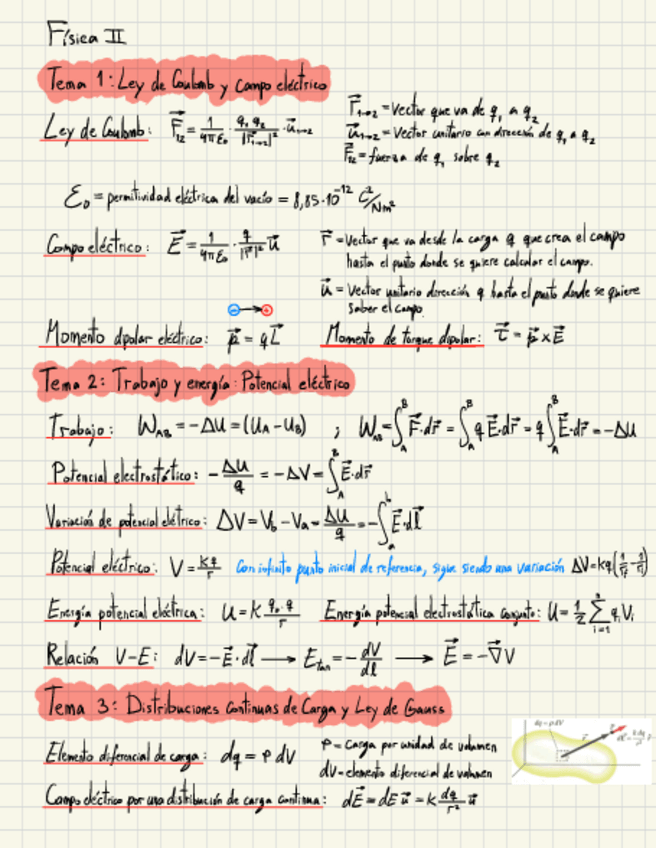 Física II
Tema 1: Ley de Coulomb y Campo eléctrico
Ley de Coulomb: F⃗₁₂ = 1/(4πε₀) · q₁q₂/|r⃗₁→₂|² · u⃗₁→₂
r⃗₁→₂ = Vector que va de q₁ a q₂
u⃗₁→₂ = Vector unitario con dirección de q₁ a q₂
F⃗₁₂ = fuerza de q₁ sobre q₂
ε₀ = permitividad eléctrica del vacío = 8,85·10⁻¹² C²/Nm²
Campo eléctrico: E⃗ = 1/(4πε₀) · q/|r⃗|² u⃗
r⃗ = Vector que va desde la carga q que crea el campo
hasta el punto donde se quiere calcular el campo.
u⃗ = Vector unitario dirección q hasta el punto donde se quiere
saber el campo.
Momento dipolar eléctrico: p⃗ = qL⃗ Momento de torque dipolar: τ⃗ = p⃗ x E⃗
Tema 2: Trabajo y energía: Potencial eléctrico
Trabajo: W_AB = -ΔU = (U_A - U_B) ; W_AB = ∫_A^B F⃗·dr⃗ = ∫_A^B q E⃗·dr⃗ = q∫_A^B E⃗·dr⃗ = -ΔU
Potencial electrostático: -ΔU/q = -ΔV = ∫_A^B E⃗·dr⃗
Variación de potencial elétrico: ΔV = V_b - V_a = ΔU/q = -∫_a^b E⃗·dl⃗
Potencial eléctrico: V = kq/r Con infinito punto inicial de referencia, sigue siendo una variación ΔV = kq(1/r_f - 1/r_i)
Energía potencial eléctrica: U = k q₀·q/r Energía potencial electrostática conjunto: U = 1/2 Σ_{i=1}^n q_i V_i
Relación V-E: dV = -E⃗·dl⃗ → E_tan = -dV/dl → E⃗ = -∇⃗V
Tema 3: Distribuciones Continuas de Carga y Ley de Gauss
Elemento diferencial de carga: dq = ρ dV
ρ = Carga por unidad de volumen
dV = elemento diferencial de volumen
Campo eléctrico por una distribución de carga continua: dE⃗ = dE u⃗ = k dq/r² u⃗
dq = ρ dV